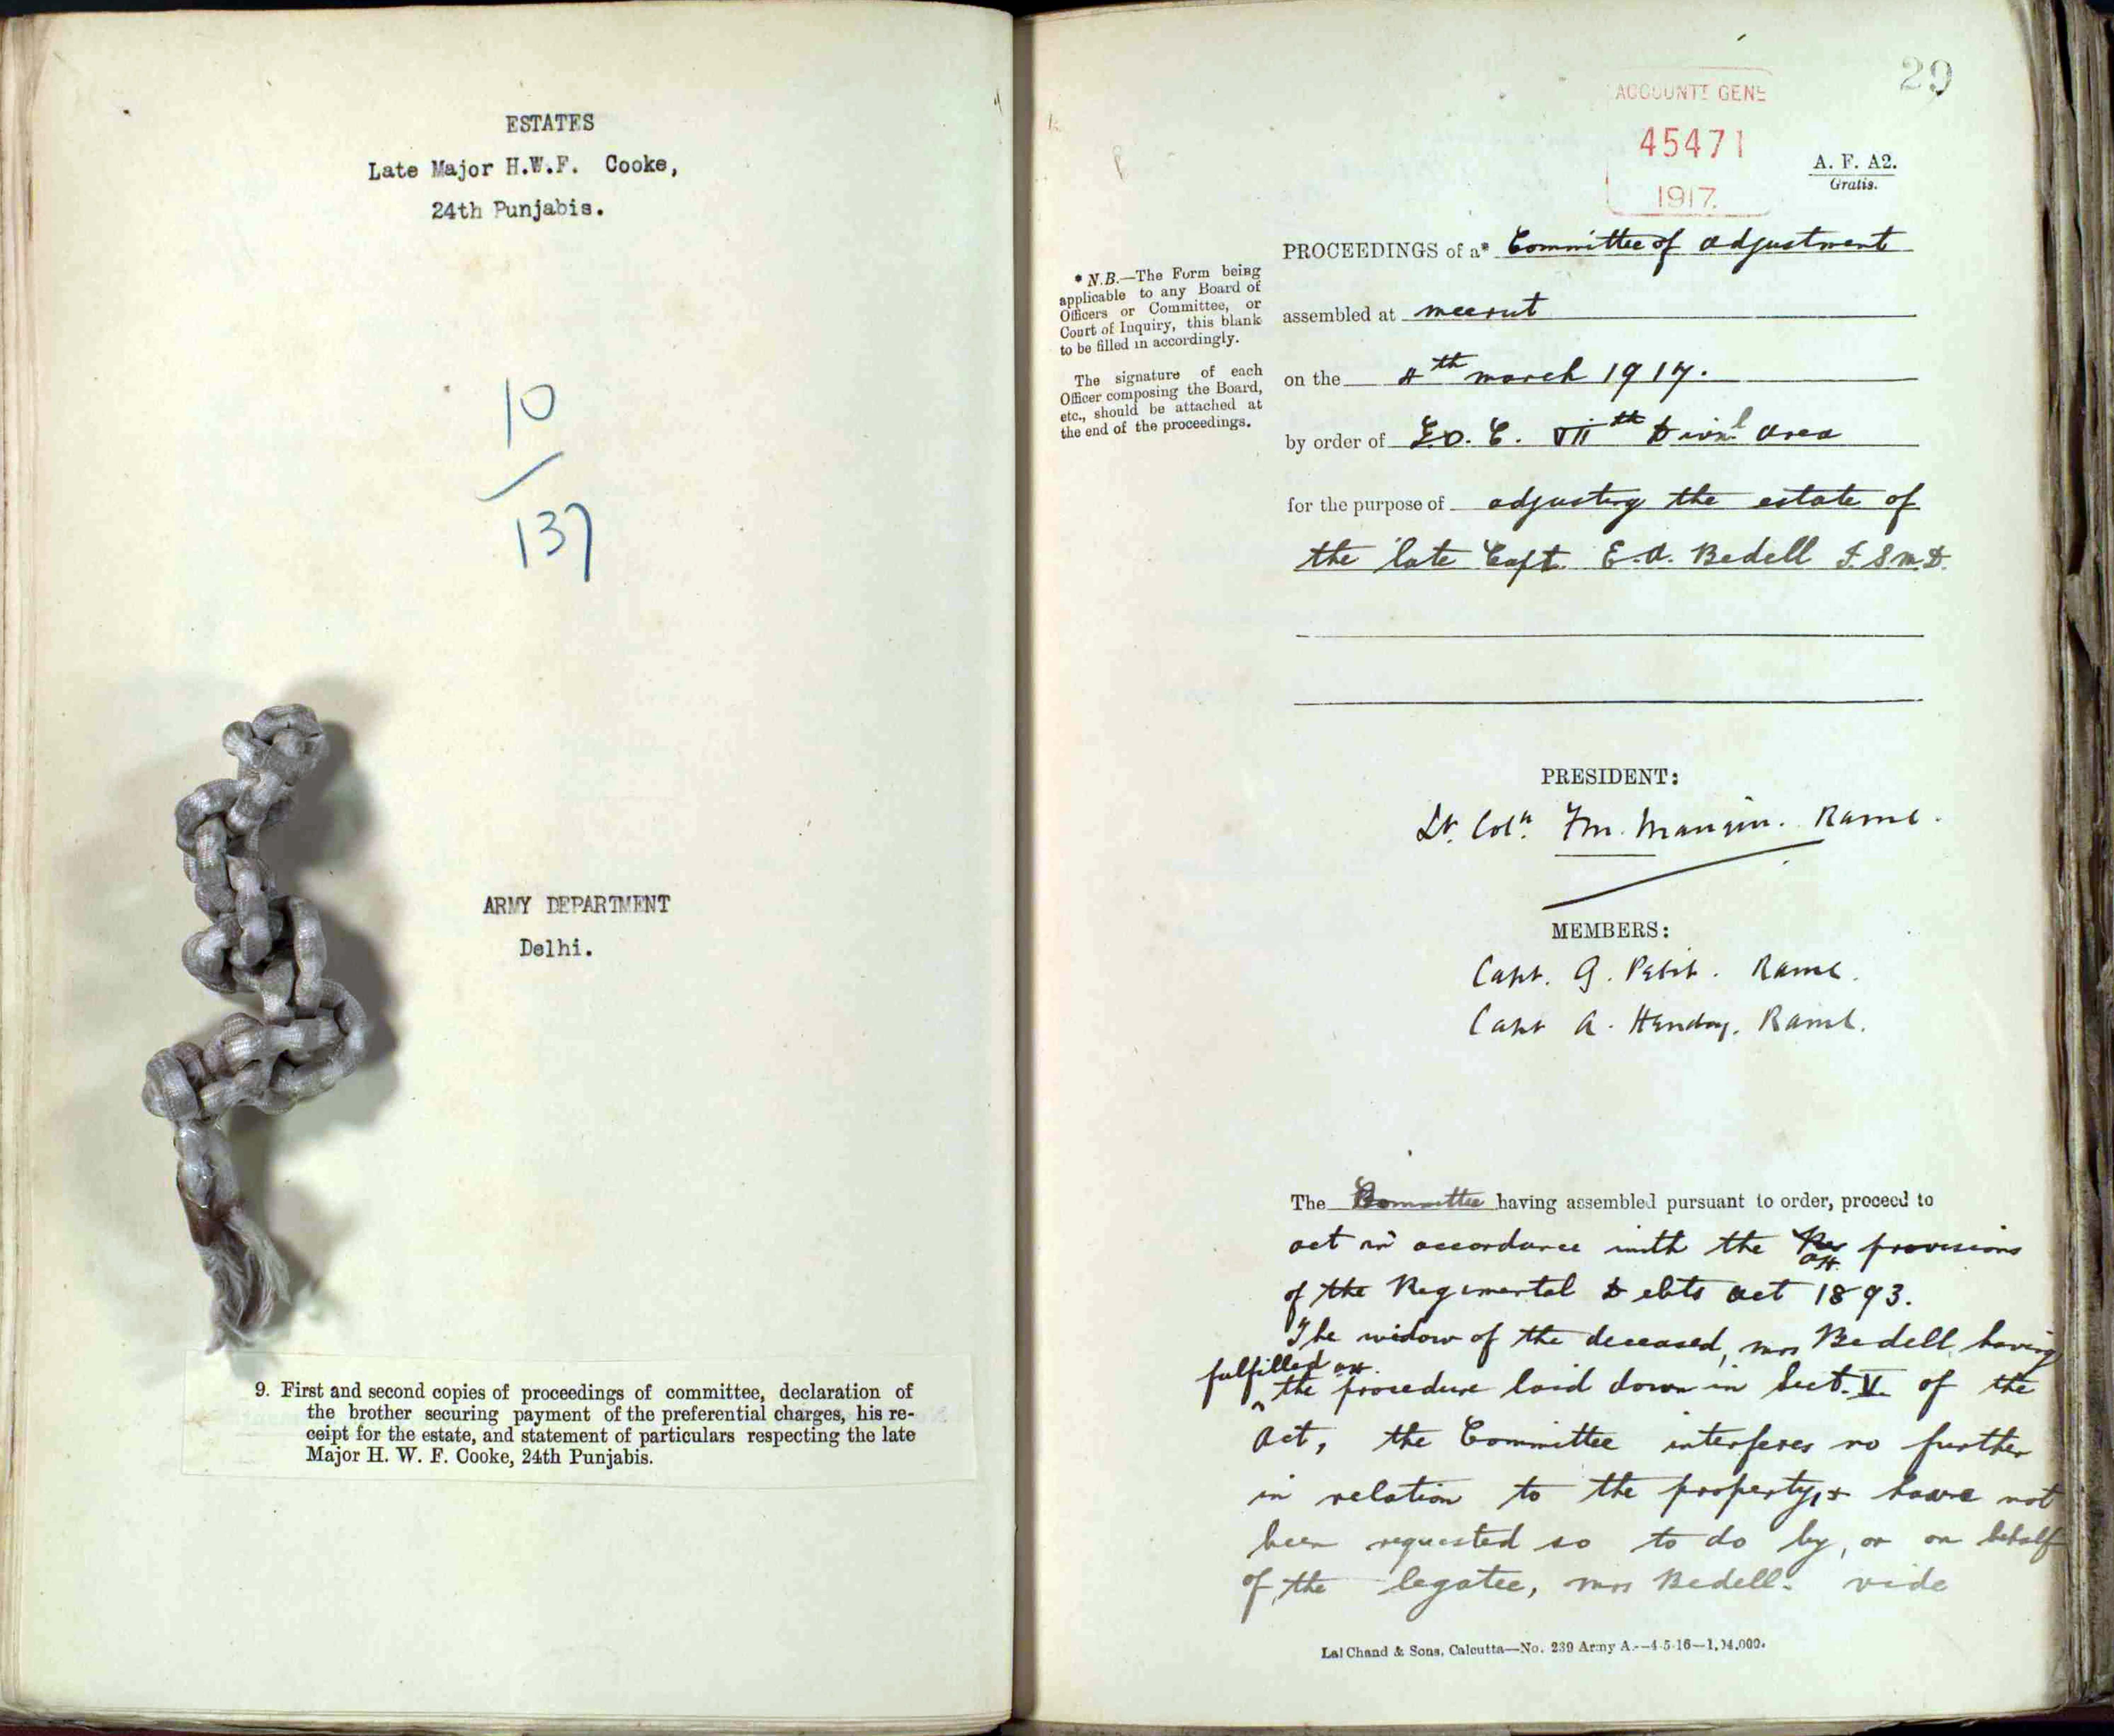 ESTATES
Late Major H.W.F. Cooke,
24th Punjabis.
10
137
ARMY DEPARTMENT
Delhi.
9. First and second copies of proceedings of committee, declaration of
the brother securing payment of the preferential charges, his re-
ceipt for the estate, and statement of particulars respecting the late
Major H. W. F. Cooke, 24th Punjabis.
29
ACCOUNTT GENE
45471
1917.
A. F. A2.
Gratis.
PROCEEDINGS of a* Committee of adjustment
assembled at meerut
on the 4th march 1917.
by order of G.O.C. VIIth Divnl area
for the purpose of adjusting the estate of
the late Capt. E.A. Bedell I.S.M.D.
* N.B.—The Form being
applicable to any Board of
Officers or Committee, or
Court of Inquiry, this blank
to be filled in accordingly.
The signature of each
Officer composing the Board,
etc., should be attached at
the end of the proceedings.
PRESIDENT:
Lt. Coln. F.M. Mangin. RAMC.
MEMBERS:
Capt. G. Petit. RAMC.
Capt A. Hendry. RAMC.
The Committee having assembled pursuant to order, proceed to
act in accordance with the provisions
of the Regimental Debts act 1893.
The widow of the deceased, mrs Bedell, having
fulfilled
the procedure laid down in Sect. V. of the
Act, the Committee interferes no further
in relation to the property, & have not
been requested so to do by, or on behalf
of, the legatee, mrs Bedell. vide
Lal Chand & Sons, Calcutta—No. 239 Army A.--4-5-16—1,94,000.